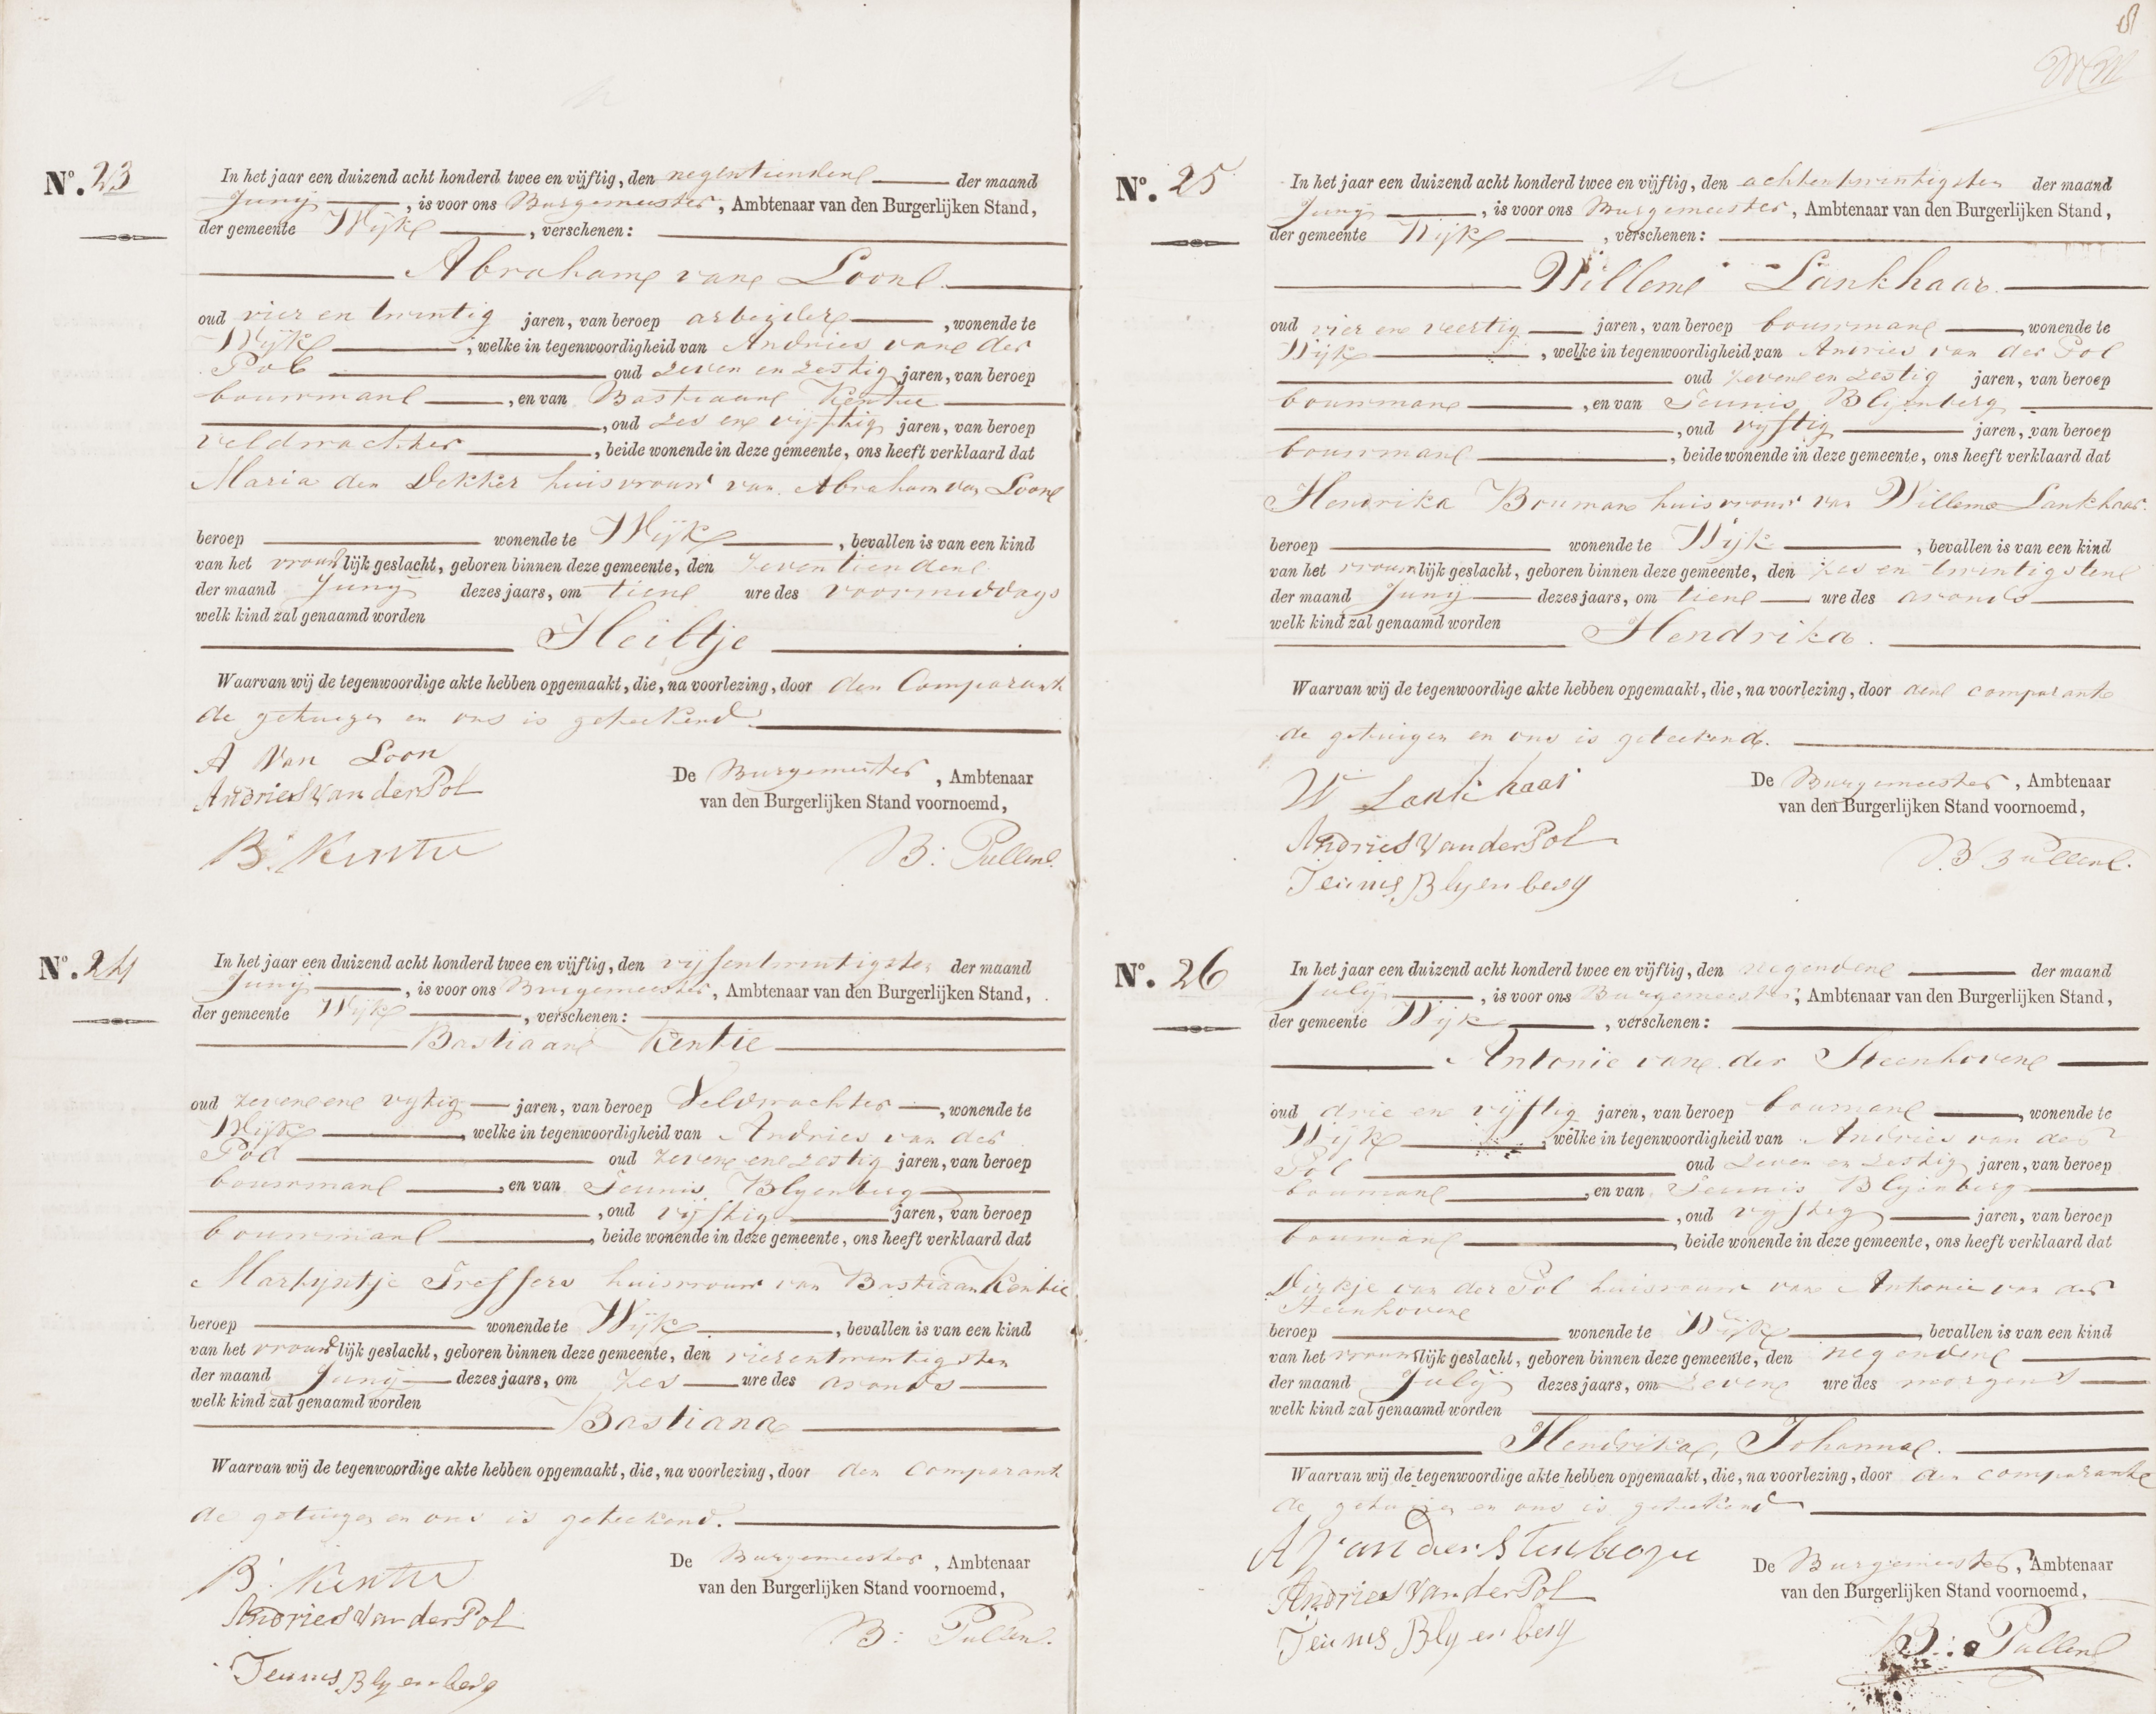 8
No. 23
In het jaar een duizend acht honderd twee en vijftig, den negentienden der maand
Junij, is voor ons Burgemeester, Ambtenaar van den Burgerlijken Stand,
der gemeente Wijk, verschenen:
Abraham van Loon.
oud vier en twintig jaren, van beroep arbeider, wonende te
Wijk, welke in tegenwoordigheid van Andries van der
Pol oud zeven en zestig jaren, van beroep
bouwman, en van Bastiaan Kentie
, oud zes en vijftig jaren, van beroep
veldwachter, beide wonende in deze gemeente, ons heeft verklaard dat
Maria den Dekker huisvrouw van Abraham van Loon
beroep wonende te Wijk, bevallen is van een kind
van het vrouwlijk geslacht, geboren binnen deze gemeente, den zeventienden
der maand Junij dezes jaars, om tien ure des voormiddags
welk kind zal genaamd worden
Heiltje
Waarvan wij de tegenwoordige akte hebben opgemaakt, die, na voorlezing, door den Comparant
de getuigen en ons is geteekend.
A Van Loon
Andries Van der Pol
B. Kentie
De Burgemeester, Ambtenaar
van den Burgerlijken Stand voornoemd,
B: Pullen.
No. 24
In het jaar een duizend acht honderd twee en vijftig, den vijfentwintigsten der maand
Junij, is voor ons Burgemeester, Ambtenaar van den Burgerlijken Stand,
der gemeente Wijk, verschenen:
Bastiaan Kentie
oud zeven en vijftig jaren, van beroep Veldwachter, wonende te
Wijk, welke in tegenwoordigheid van Andries van der
Pol oud zeven en zestig jaren, van beroep
bouwman, en van Teunis Blyenberg
, oud vijftig jaren, van beroep
bouwman, beide wonende in deze gemeente, ons heeft verklaard dat
Martijntje Treffers huisvrouw van Bastiaan Kentie
beroep wonende te Wijk, bevallen is van een kind
van het vrouwlijk geslacht, geboren binnen deze gemeente, den vierentwintigsten
der maand Junij dezes jaars, om zes ure des avonds
welk kind zal genaamd worden
Bastiana
Waarvan wij de tegenwoordige akte hebben opgemaakt, die, na voorlezing, door den Comparant
de getuigen en ons is geteekend.
B. Kentie
Andries Van der Pol
Teunis Blyenberg
De Burgemeester, Ambtenaar
van den Burgerlijken Stand voornoemd,
B: Pullen.
No. 25
In het jaar een duizend acht honderd twee en vijftig, den achtentwintigsten der maand
Junij, is voor ons Burgemeester, Ambtenaar van den Burgerlijken Stand,
der gemeente Wijk, verschenen:
Willem Lankhaar.
oud vier en veertig jaren, van beroep bouwman, wonende te
Wijk, welke in tegenwoordigheid van Andries van der Pol
oud zeven en zestig jaren, van beroep
bouwman, en van Teunis Blijenberg
, oud vijftig jaren, van beroep
bouwman, beide wonende in deze gemeente, ons heeft verklaard dat
Hendrika Bouman huisvrouw van Willem Lankhaar.
beroep wonende te Wijk, bevallen is van een kind
van het vrouwlijk geslacht, geboren binnen deze gemeente, den zes en twintigsten
der maand Junij dezes jaars, om tien ure des avonds
welk kind zal genaamd worden
Hendrika.
Waarvan wij de tegenwoordige akte hebben opgemaakt, die, na voorlezing, door den comparant
de getuigen en ons is geteekend.
W Lankhaar
Andries Van der Pol
Teunis Blyenberg
De Burgemeester, Ambtenaar
van den Burgerlijken Stand voornoemd,
B. Pullen.
No. 26
In het jaar een duizend acht honderd twee en vijftig, den negenden der maand
Julij, is voor ons Burgemeester, Ambtenaar van den Burgerlijken Stand,
der gemeente Wijk, verschenen:
Antonie van der Steenhoven
oud drie en vijftig jaren, van beroep bouman, wonende te
Wijk, welke in tegenwoordigheid van Andries van der
Pol oud zeven en zestig jaren, van beroep
bouman, en van Teunis Blijenberg
, oud vijftig jaren, van beroep
bouman, beide wonende in deze gemeente, ons heeft verklaard dat
Dirkje van der Pol huisvrouw van Antonie van der
Steenhoven
beroep wonende te Wijk, bevallen is van een kind
van het vrouwlijk geslacht, geboren binnen deze gemeente, den negenden
der maand Julij dezes jaars, om zeven ure des morgens
welk kind zal genaamd worden
Hendrika, Johanna.
Waarvan wij de tegenwoordige akte hebben opgemaakt, die, na voorlezing, door den comparant
de getuigen en ons is geteekend
Andries Van der Pol
Teunis Blyenberg
De Burgemeester, Ambtenaar
van den Burgerlijken Stand voornoemd,
B: Pullen